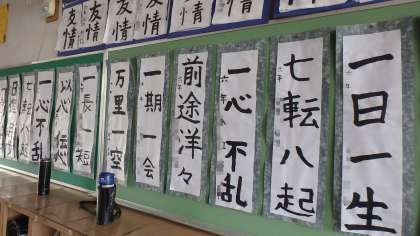 友情
友情
友情
友情
友情
一日一生
七転八起
一心不乱
前途洋々
一期一会
万里一空
一長一短
以心伝心
一心不乱
七転八起